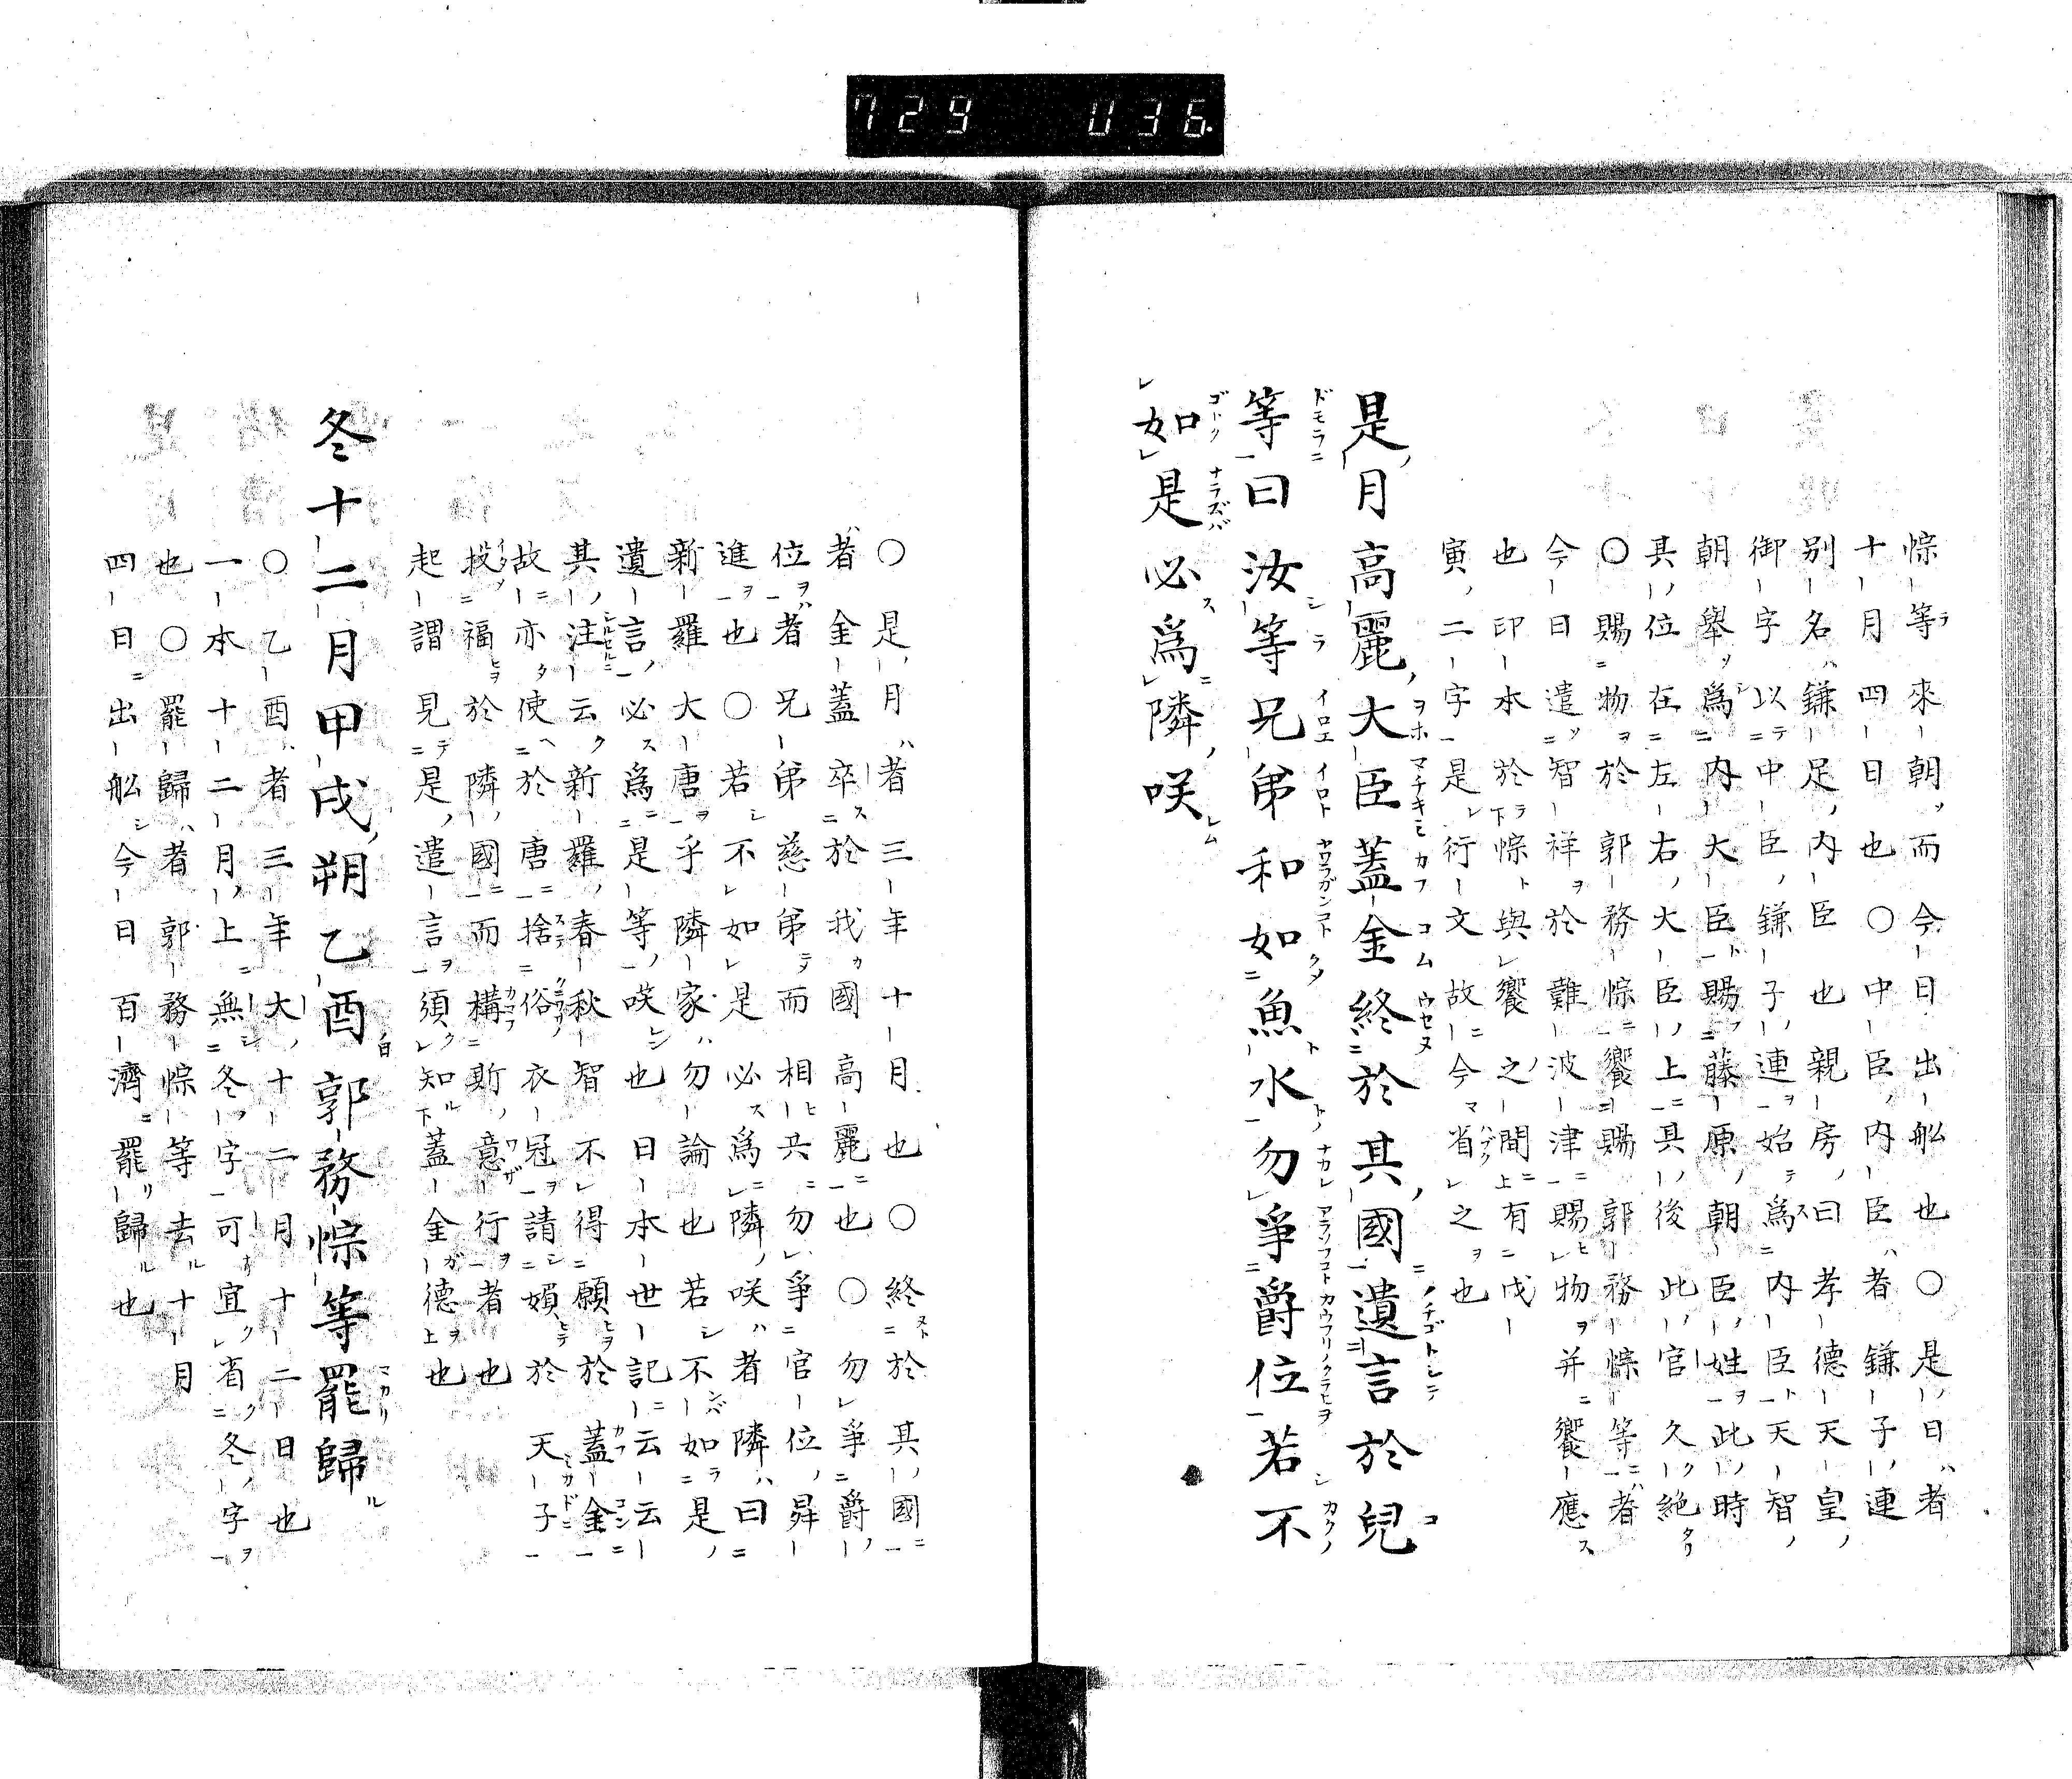 729 036.
悰等來朝而今日出船也○是日者
十月四日也○中臣内臣者鎌子連
別名鎌足内臣也親房曰孝德天皇
御字以中臣鎌子連始爲内臣天智
朝舉爲内大臣賜藤原朝臣姓此時
其位在左右大臣上其後此官久絶
○賜物於郭務悰饗賜郭務悰等者
今日遣智祥於難波津賜物并饗應
也印本於悰與饗之間有戊
寅二字是行文故今省之也
是月高麗大臣蓋金終於其國遺言於兒
等曰汝等兄弟和如魚水勿爭爵位若不
如是必爲隣咲
○是月者三年十月也○終於其國
者金蓋卒於我國高麗也○勿爭爵
位者兄弟慈弟而相共勿爭官位昇
進也○若不如是必爲隣咲者隣曰
新羅大唐乎隣家勿論也若不如是
遺言必爲是等咲也日本世記云云
其注云新羅春秋智不得願於蓋金
故亦使於唐捨俗衣冠請媚於天子
投福於隣國而構斯意行者也
起謂見是遣言須知蓋金德也
冬十二月甲戌朔乙酉郭務悰等罷歸
○乙酉者三年大十二月十二日也
一本十二月上無冬字可宜省冬字
也○罷歸者郭務悰等去十月
四日出船今日百濟罷歸也